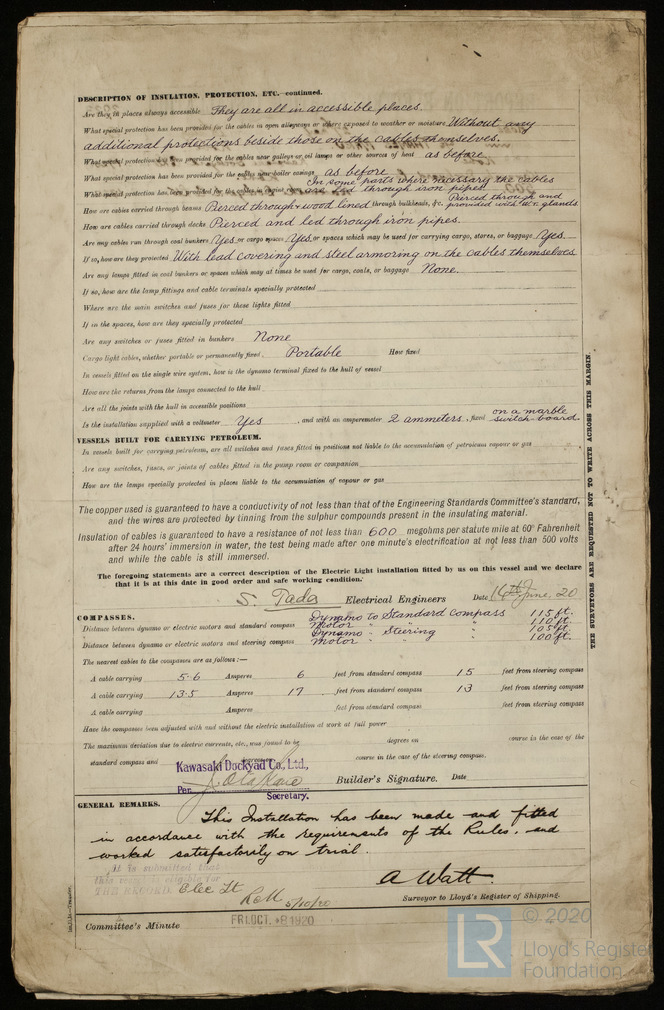 DESCRIPTION OF INSULATION, PROTECTION, ETC.—continued.
Are they in places always accessible They are all in accessible places.
What special protection has been provided for the cables in open alleyways or where exposed to weather or moisture Without any
additional protections beside those on the cables themselves.
What special protection has been provided for the cables near galleys or oil lamps or other sources of heat as before
What special protection has been provided for the cables near boiler casings as before
In some parts where necessary the cables
What special protection has been provided for the cables in are led through iron pipes.
How are cables carried through beams Pierced through & wood lined through bulkheads, &c. Pierced through and provided with W.T. glands.
How are cables carried through decks Pierced and led through iron pipes.
Are any cables run through coal bunkers Yes or cargo spaces Yes or spaces which may be used for carrying cargo, stores, or baggage Yes.
If so, how are they protected With lead covering and steel armoring on the cables themselves
Are any lamps fitted in coal bunkers or spaces which may at times be used for cargo, coals, or baggage None.
If so, how are the lamp fittings and cable terminals specially protected
Where are the main switches and fuses for these lights fitted
If in the spaces, how are they specially protected
Are any switches or fuses fitted in bunkers None
Cargo light cables, whether portable or permanently fixed. Portable How fixed
In vessels fitted on the single wire system, how is the dynamo terminal fixed to the hull of vessel
How are the returns from the lamps connected to the hull
Are all the joints with the hull in accessible positions
Is the installation supplied with a voltmeter Yes , and with an amperemeter 2 ammeters , fixed on a marble switch-board.
VESSELS BUILT FOR CARRYING PETROLEUM.
In vessels built for carrying petroleum, are all switches and fuses fitted in positions not liable to the accumulation of petroleum vapour or gas
Are any switches, fuses, or joints of cables fitted in the pump room or companion
How are the lamps specially protected in places liable to the accumulation of vapour or gas
The copper used is guaranteed to have a conductivity of not less than that of the Engineering Standards Committee's standard,
and the wires are protected by tinning from the sulphur compounds present in the insulating material.
Insulation of cables is guaranteed to have a resistance of not less than 600 megohms per statute mile at 60° Fahrenheit
after 24 hours' immersion in water, the test being made after one minute's electrification at not less than 500 volts
and while the cable is still immersed.
The foregoing statements are a correct description of the Electric Light installation fitted by us on this vessel and we declare
that it is at this date in good order and safe working condition.
S. Tada Electrical Engineers Date 16th June. 20
COMPASSES.
Distance between dynamo or electric motors and standard compass Dynamo to Standard Compass 115 ft.
Motor " " 110 ft.
Distance between dynamo or electric motors and steering compass Dynamo " Steering " 105 ft.
Motor " " 100 ft.
The nearest cables to the compasses are as follows:—
A cable carrying 5.6 Amperes 6 feet from standard compass 15 feet from steering compass
A cable carrying 13.5 Amperes 17 feet from standard compass 13 feet from steering compass
A cable carrying Amperes feet from standard compass feet from steering compass
Have the compasses been adjusted with and without the electric installation at work at full power
The maximum deviation due to electric currents, etc., was found to be degrees on course in the case of the
standard compass and degrees on course in the case of the steering compass.
Kawasaki Dockyad Co., Ltd.,
Per Builder's Signature. Date
Secretary.
GENERAL REMARKS.
This Installation has been made and fitted
in accordance with the requirements of the Rules, and
worked satisfactorily on trial.
It is submitted that
this vessel is eligible for
THE RECORD. Elec Lt
5/10/20
A Watt.
Surveyor to Lloyd's Register of Shipping.
Committee's Minute FRI. OCT. 8 1920
THE SURVEYORS ARE REQUESTED NOT TO WRITE ACROSS THIS MARGIN.
LR
© 2020
Lloyd's Register
Foundation